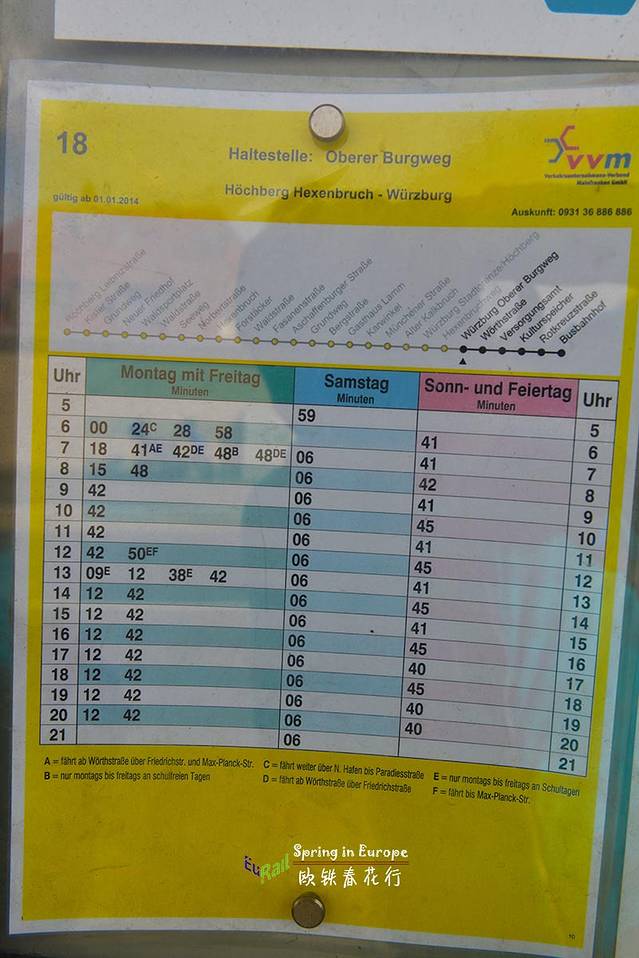 18
Haltestelle: Oberer Burgweg
vvm
Verkehrsunternehmens-Verbund
Mainfranken GmbH
Höchberg Hexenbruch - Würzburg
gültig ab 01.01.2014
Auskunft: 0931 36 886 886
Höchberg Leibnizstraße
Kister Straße
Grundweg
Neuer Friedhof
Waldsportplatz
Waldstraße
Seeweg
Norbertstraße
Hexenbruch
Forstäcker
Waldstraße
Fasanenstraße
Aschaffenburger Straße
Grundweg
Bergstraße
Gasthaus Lamm
Münchener Straße
Alter Kalkbruch
Würzburg Stadtgrenze/Höchberg
Hexenbruchweg
Würzburg Oberer Burgweg
Wörthstraße
Versorgungsamt
Kulturspeicher
Rotkreuzstraße
Busbahnhof
Uhr Montag mit Freitag Samstag Sonn- und Feiertag Uhr
Minuten Minuten Minuten
5 59 5
6 00 24C 28 58 41 6
7 18 41AE 42DE 48B 48DE 06 41 7
8 15 48 06 42 8
9 42 06 41 9
10 42 06 45 10
11 42 06 41 11
12 42 50EF 06 45 12
13 09E 12 38E 42 06 41 13
14 12 42 06 45 14
15 12 42 06 41 15
16 12 42 06 45 16
17 12 42 06 40 17
18 12 42 06 45 18
19 12 42 06 40 19
20 12 42 06 40 20
21 06 21
A = fährt ab Wörthstraße über Friedrichstr. und Max-Planck-Str.
B = nur montags bis freitags an schulfreien Tagen
C = fährt weiter über N. Hafen bis Paradiesstraße
D = fährt ab Wörthstraße über Friedrichstraße
E = nur montags bis freitags an Schultagen
F = fährt bis Max-Planck-Str.
EuRail Spring in Europe
欧铁春花行
10